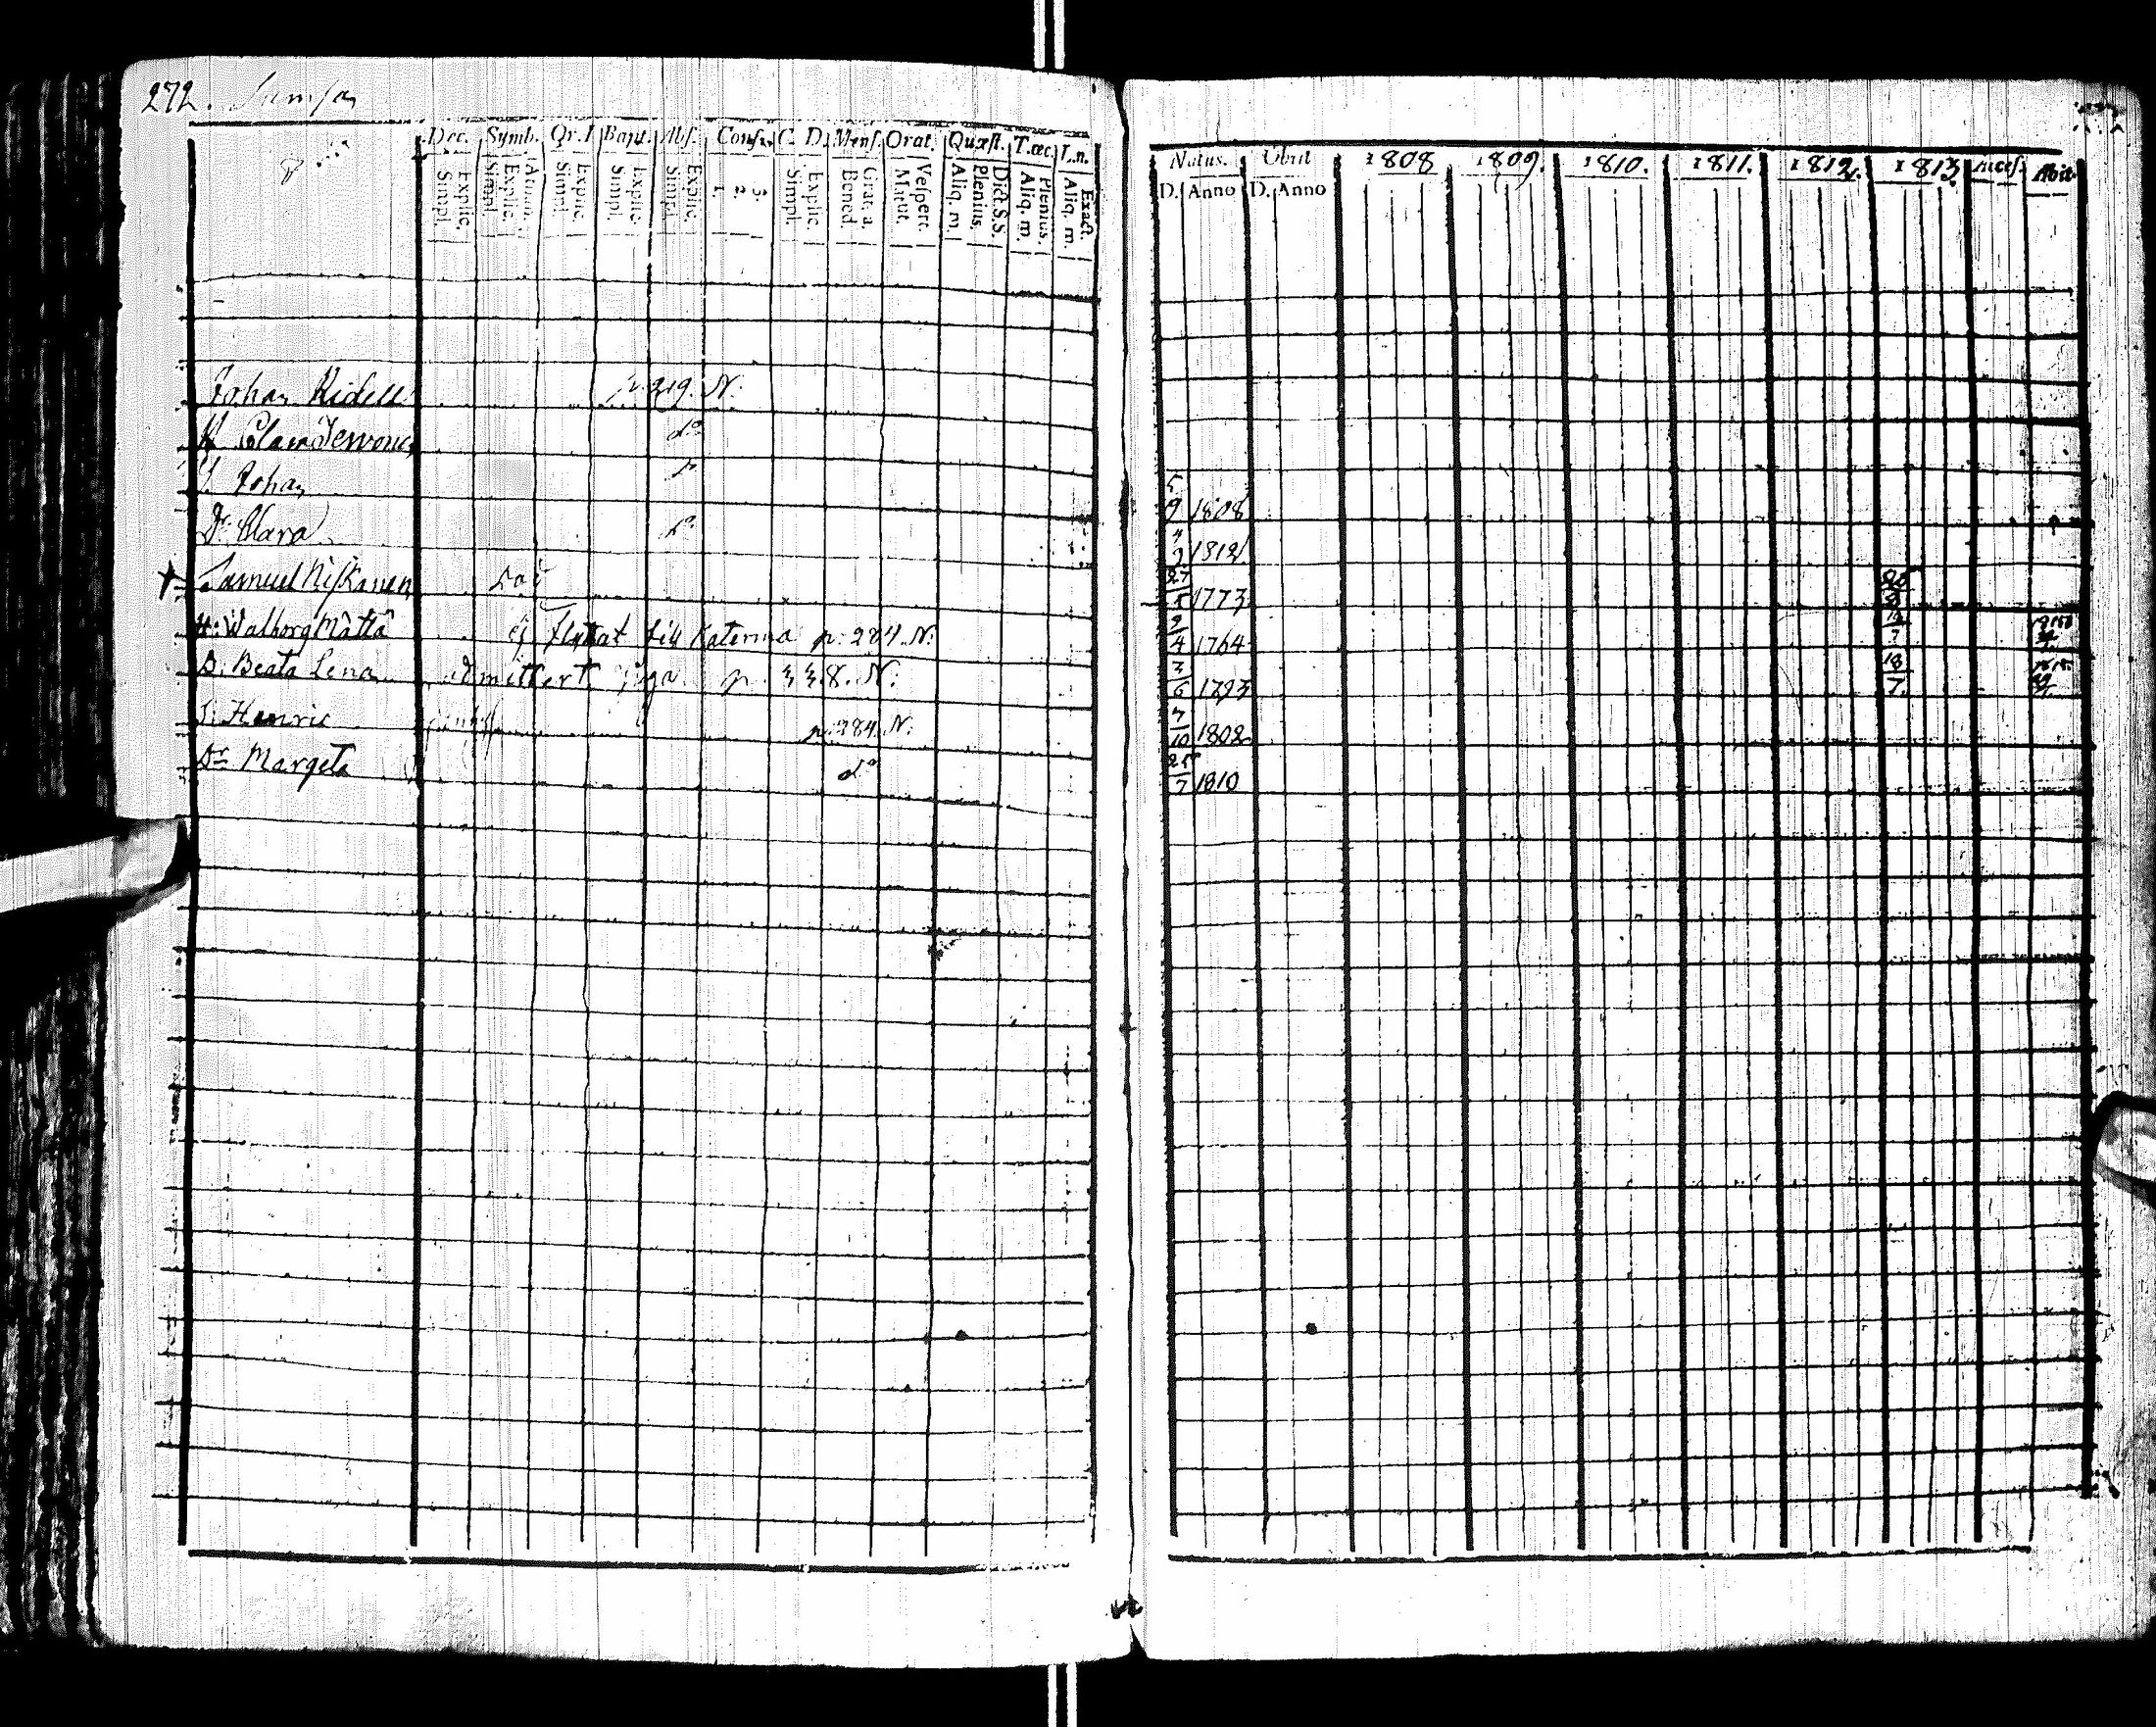 272. Sumsa
Dec. Symb. Qr. I Bapt. Abs. Conf. C. D. Mens. Orat. Quæst. T. œc. L. n.
Explic. Simpl. Athan. Explic. Simpl. Explic. Simpl. Explic. Simpl. Explic. Simpl. 3. 2. 1. Explic. Simpl. Grat. a. Bened. Vespert. Matut. Dict. S. S. Plenius. Aliq. m. Plenius. Aliq. m. Exact. Aliq. m.
Natus. Obiit 1808 1809. 1810. 1811. 1812. 1813. Acces. Abit.
D. Anno D. Anno
Johan Kidell p. 219. N.
Clara d:o
Johan 5/9 1808
Dr. Clara d:o 4/2 1812
Samuel Niskanen 27/5 1773
H: Walborg Måttå flyttat till p. 284. N. 2/4 1764 7
D. Beata Lena admitterts p. 338. N. 3/6 1793 18/7
S. Henric p. 284. N. 7/10 1808
Dr Margeta d:o 25/7 1810